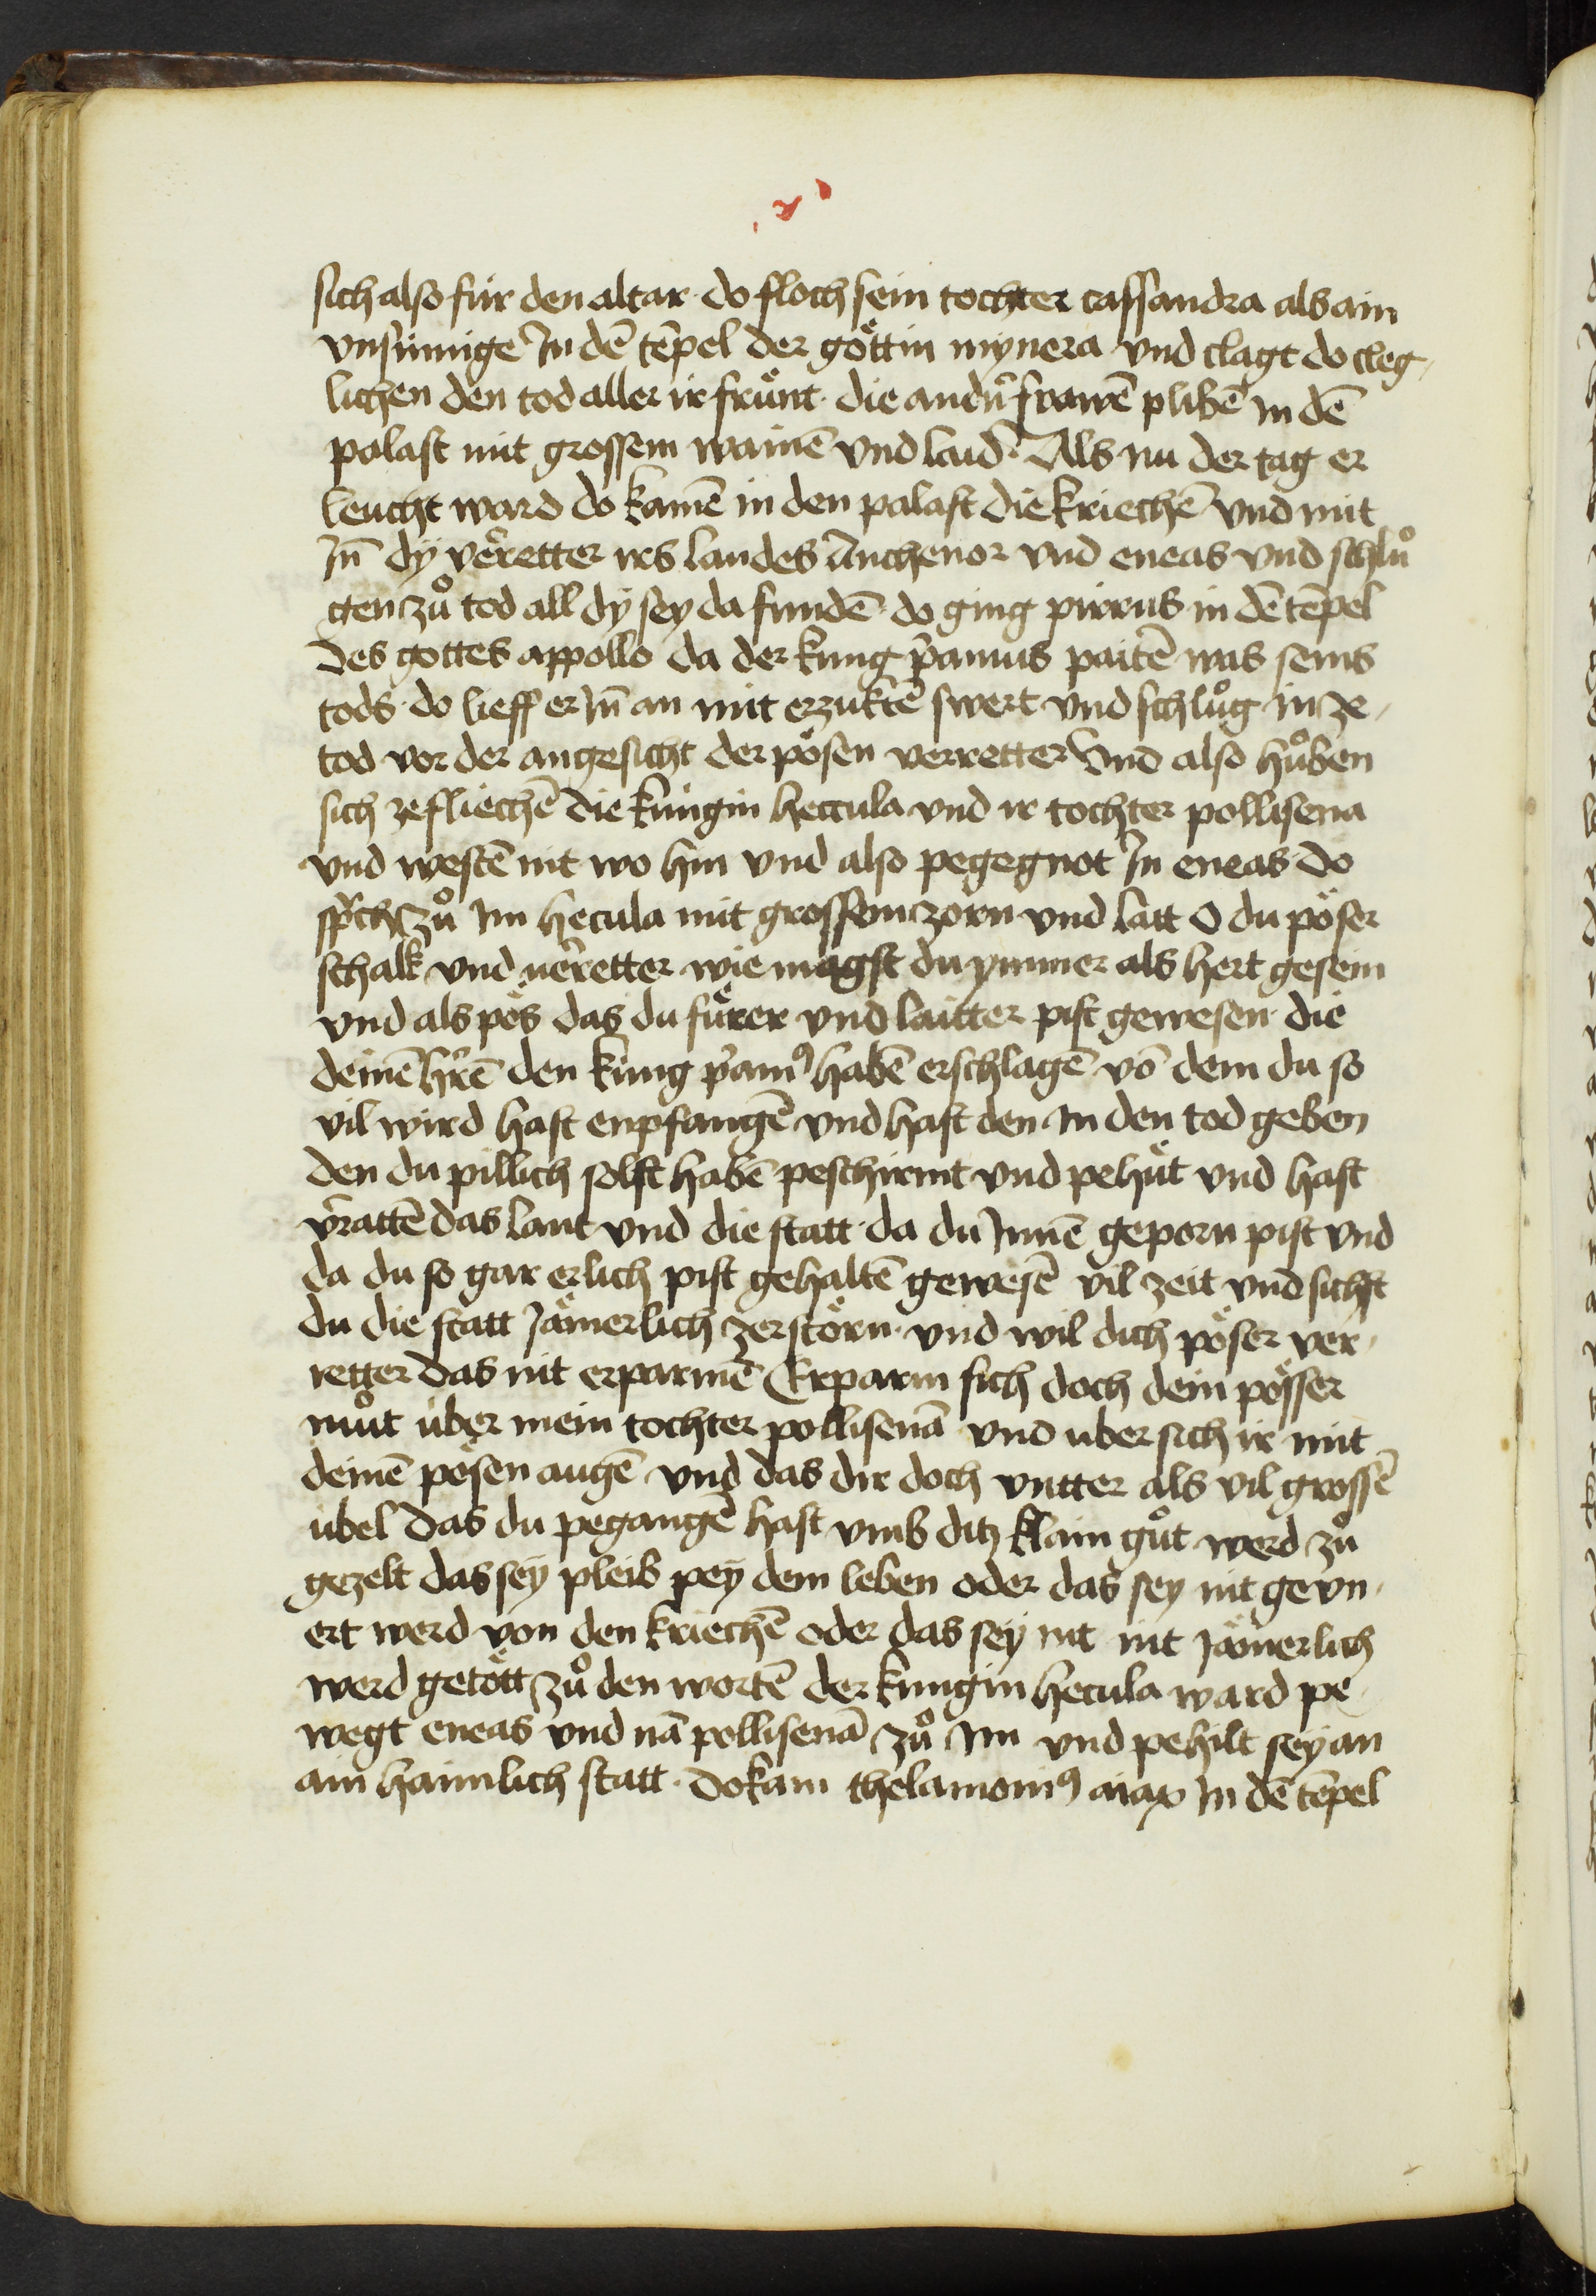 sich also für den altar · do floch sein tochter cassandra als ain
vnsinnige In dē tēpel der göttin mynera vnd clagt do cleg,
lichen den tod aller ir frünt · die andn̄ frawē plibē in dē
palast mit grossem wainē vnd laid · Als nu der tag er
leucht ward do kamē in den palast die kriechē vnd mit
In̄ dÿ veꝛretter irs landes Anthenor vnd eneas vnd schlů
gen zů tod all dÿ seÿ da fundē · do ging pirrus in dē tēpel
des gottes appollo da der kung p̄amus paitē was seins
tods · do lieff er In̄ an mit erzuktē swert vnd schlůg in ze,
tod vor der angesicht der pösen verretter Vnd also hůben
sich ze fliechē die kungin heccula vnd ir tochter pollisena
vnd westē nit wo hin vnd also pegegnot In eneas do
sp̄ch zů Im hecula mit grossem zorn vnd latt O du pöser
schalk vnd veꝛretter wie magst du ymmer als hert gesein
vnd als pös das du fürer vnd laitter pist gewesen · die
deinē hr̄ē den kung p̄amꝰ habē erschlagē vō dem du so
vil wird hast enpfangē vnd hast den in den tod geben
den du pillich solst habē peschirmt vnd pehüt vnd hast
v̄rattē das lant vnd die statt · da du Innē geporn pist vnd
da du so gar erlich pist gehaltē gewesē vil zeit vnd sichst
du die statt Jämerlich zerstörn · vnd wil dich pöser ver,
retter das nit erparmē Erparm sich doch dein pösser
můt über mein tochter pollisenā vnd uber sich ir mit
deinē pösen augē vnd das dir doch vntter als vil grossē
übel das du pegangē hast vmb ditz klain gůt werd zů
gezelt das seÿ pleib peÿ dem leben oder das sey nit gevn,
ert werd von den kriechē oder das seÿ nit nit Jämerlich
werd getött zů den wortē der kungin hecula ward pe,
wegt eneas vnd nā pollisenā zů Im vnd pehilt seÿ an
ain haimlich statt · do kam thelamonꝰ aiax In dē tēpel